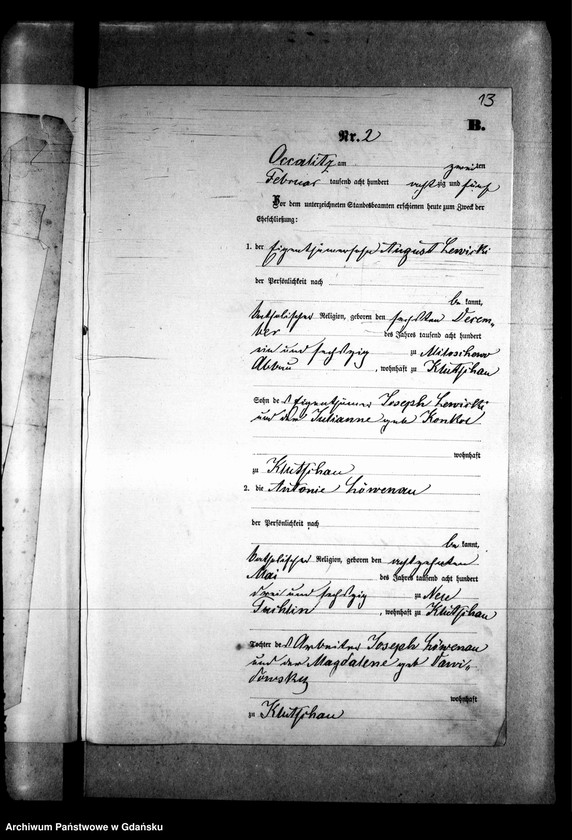 13
B.
Nr. 2
Occalitz am zweiten
Februar tausend acht hundert achtzig und fünf
Vor dem unterzeichneten Standesbeamten erschienen heute zum Zweck der
Eheschließung:
1. der Eigenthümersohn August Lewicki
der Persönlichkeit nach
bekannt,
katholischer Religion, geboren den sechsten Decem-
ber des Jahres tausend acht hundert
ein und sechszig zu Miloschewo
Abbau, wohnhaft zu Klutschau
Sohn des Eigenthümer Joseph Lewicki
und der Julianne geb Konkol
wohnhaft
zu Klutschau
2. die Antonie Löwenau
der Persönlichkeit nach
bekannt,
katholischer Religion, geboren den achtzehnten
Mai des Jahres tausend acht hundert
drei und sechszig zu Neu
Tuchlin, wohnhaft zu Klutschau
Tochter des Arbeiter Joseph Löwenau
und der Magdalene geb Dawi-
dowsky
wohnhaft
zu Klutschau
Archiwum Państwowe w Gdańsku